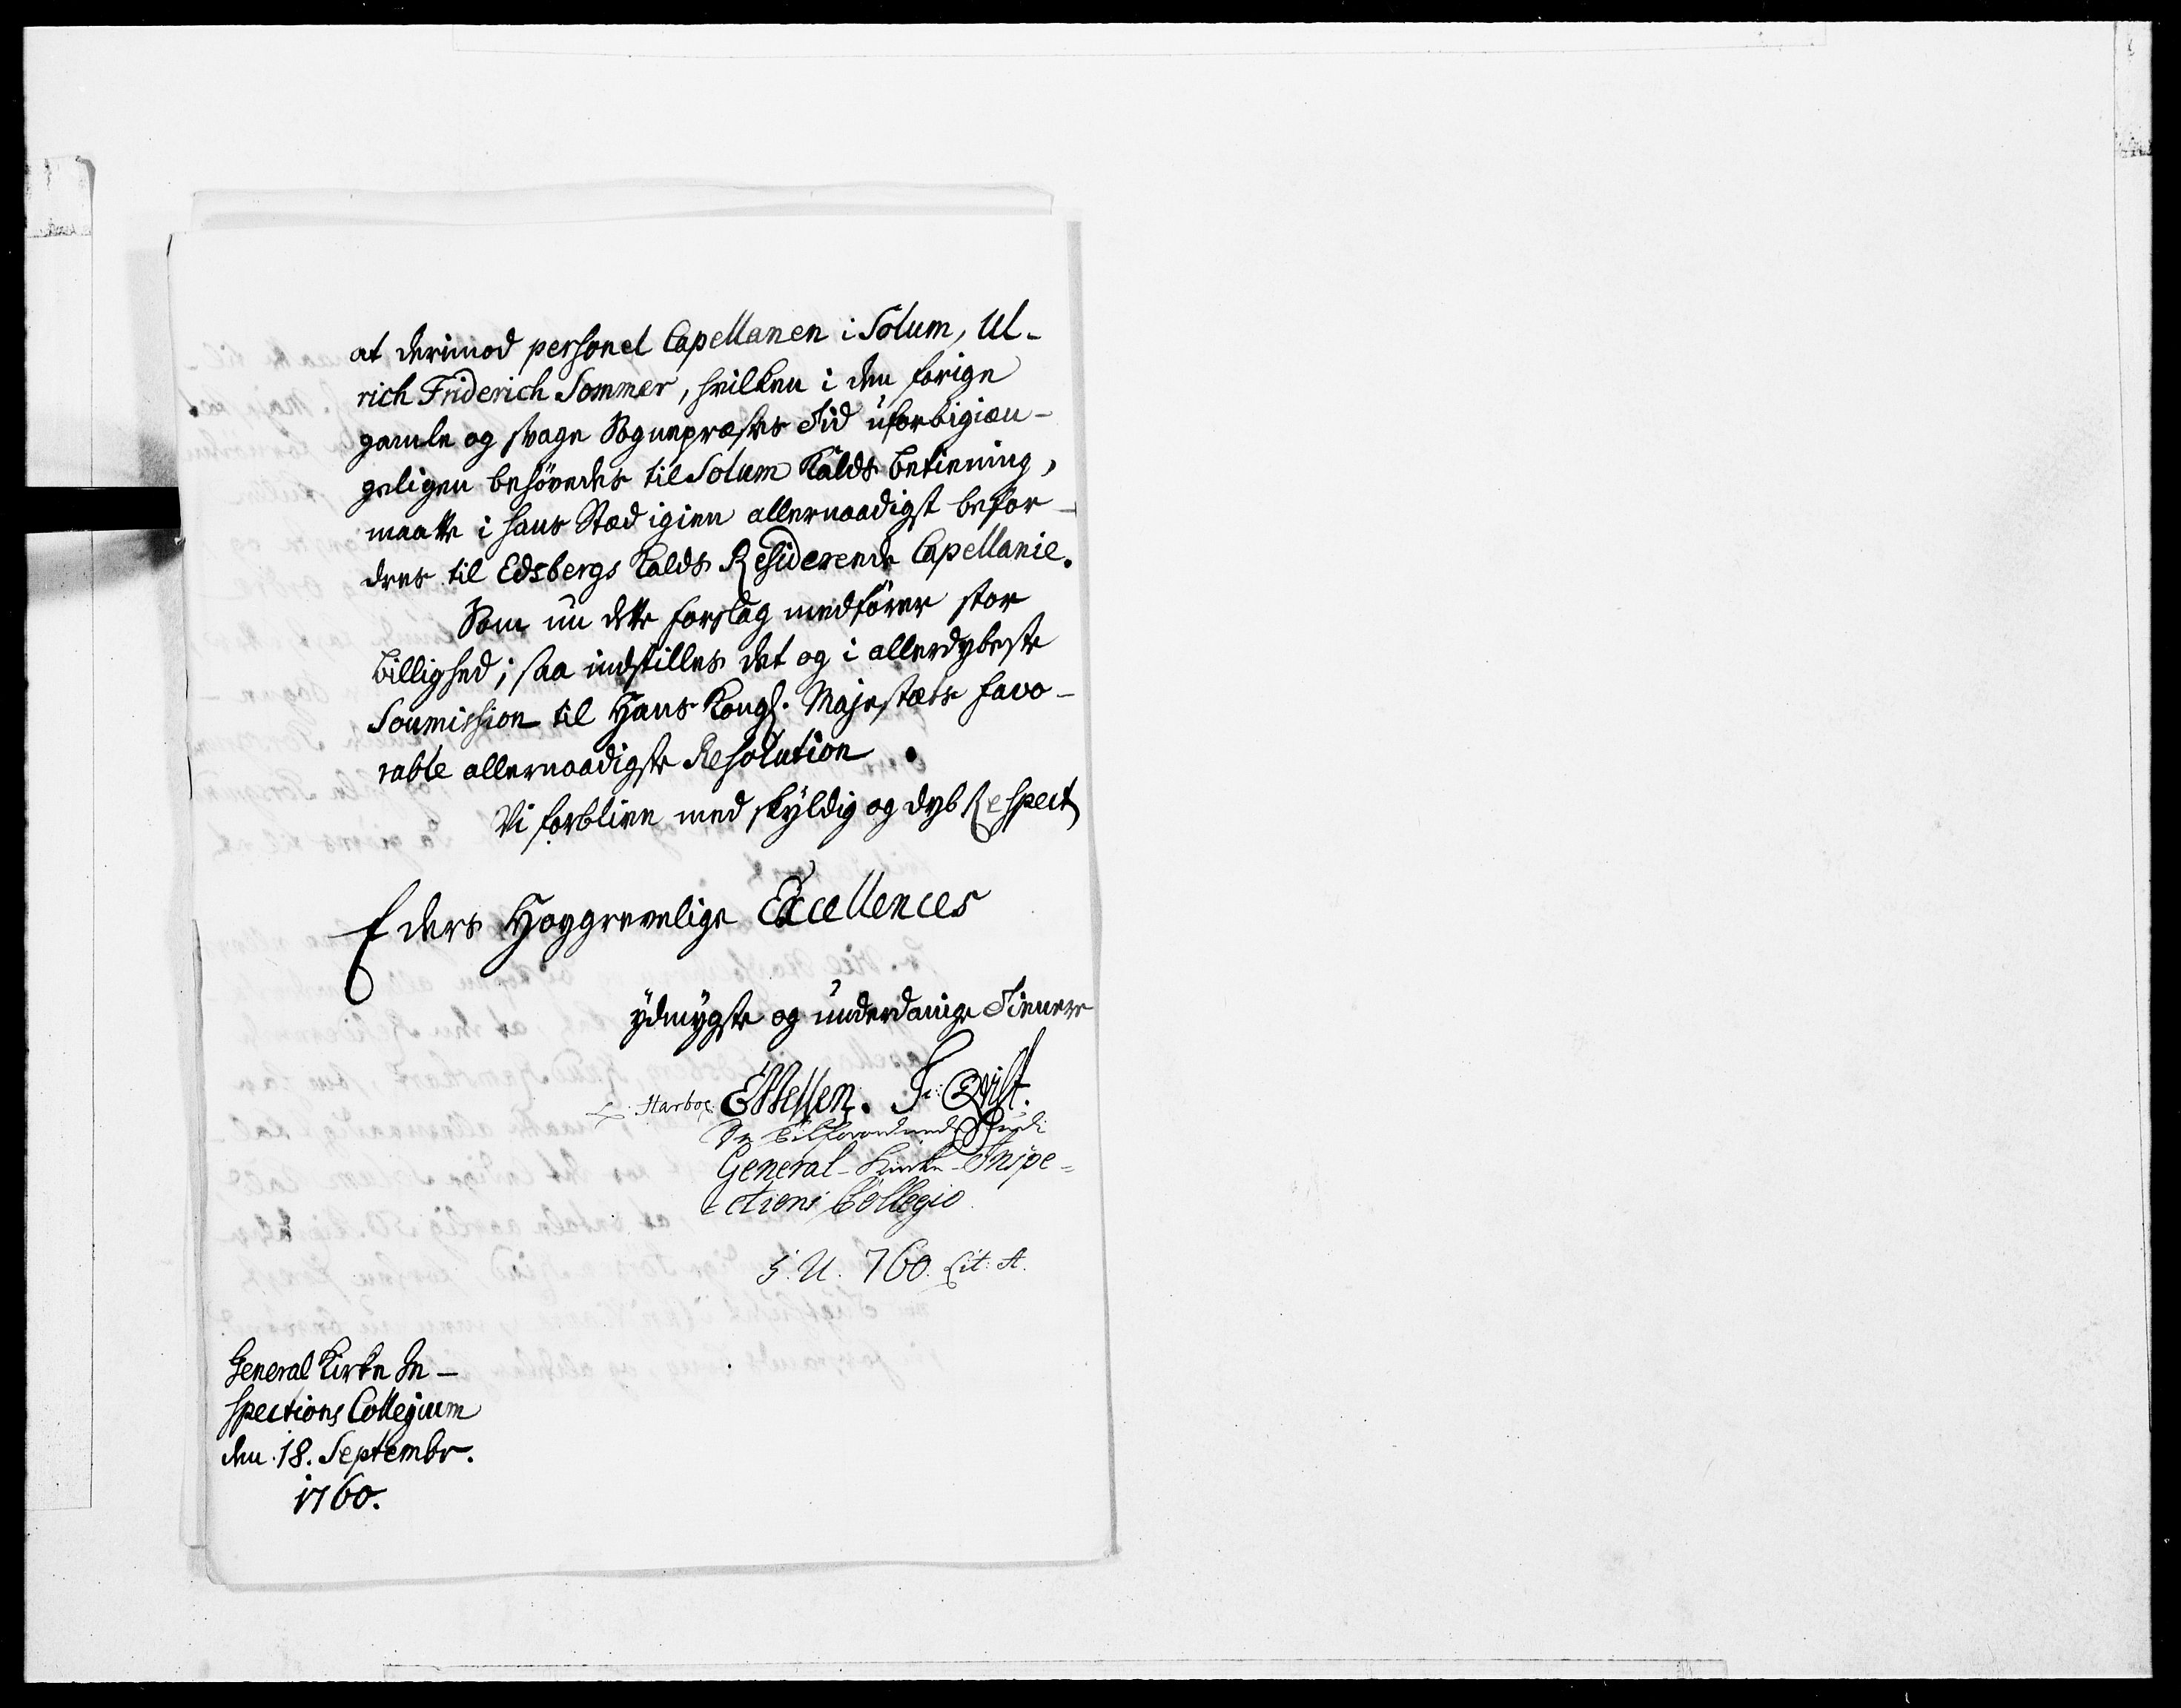 at derimod personel Capellanen i Solum, Ul-
rich Friderich Sommer, hvilken i den forige
gamle og svage Sognepræstes Tid uforbigiæn-
geligen behövedes til Solum Kalds betiening,
maatte i hans Stæd igien allernaadigst befor-
dres til Edsbergs Kalds Residerende Capellanie.
Som nu dette forslag medförer stor
billighed; saa indstilles det og i allerdybeste
Soumission til Hans Kongl. Majestæts favo-
rable allernaadigste Resolution.
Vi forblive med skyldig og dyb Respect
Eders Høygrevelige Excellences
ydmygste og underdanige Tienere
L: Harboe. EWessen. J: Qvist.
General-Kirke-Inspe=
ctions Collegio
S. U. 760. Lit: A.
General Kirke In-
spections Collegium
den. 18. Septembr.
1760.